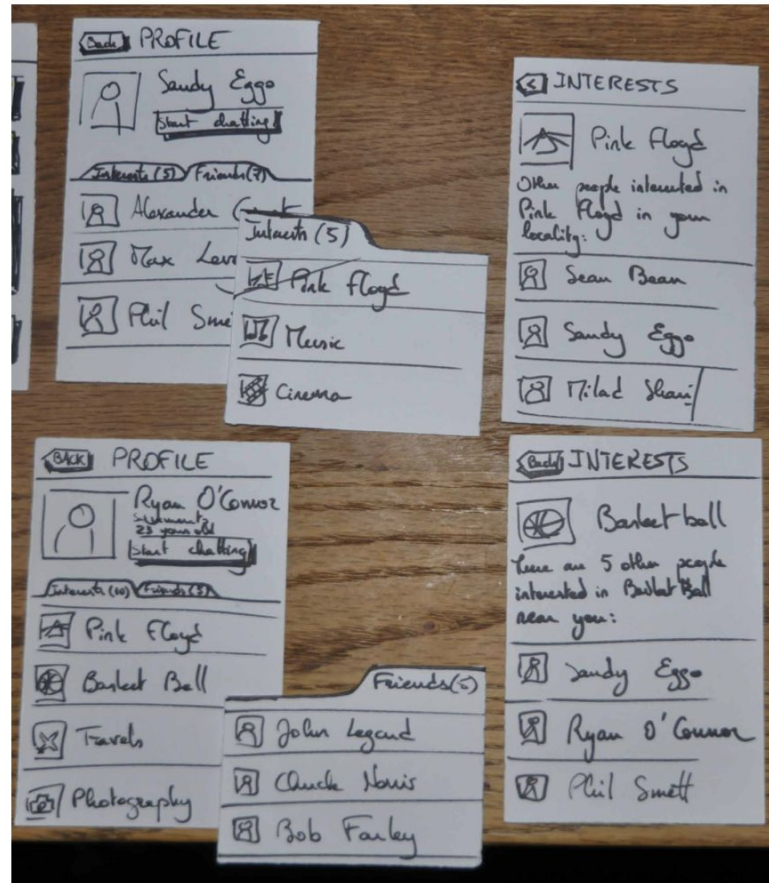 Back PROFILE
Sandy Eggo
Start chatting
Interests (5) Friends (7)
Alexander
Max
Phil
Interests (5)
Pink Floyd
Music
Cinema
< INTERESTS
Pink Floyd
Other people interested in
Pink Floyd in your
locality:
Sean Bean
Sandy Eggo
Milad
BACK PROFILE
Ryan O'Connor
23 years old
Start chatting
Interests (10) Friends (5)
Pink Floyd
Basket Ball
Travels
Photography
Friends (5)
John Legend
Chuck Norris
Bob Farley
Back INTERESTS
Basket ball
There are 5 other people
interested in Basket Ball
near you:
Sandy Eggo
Ryan O'Connor
Phil Smett